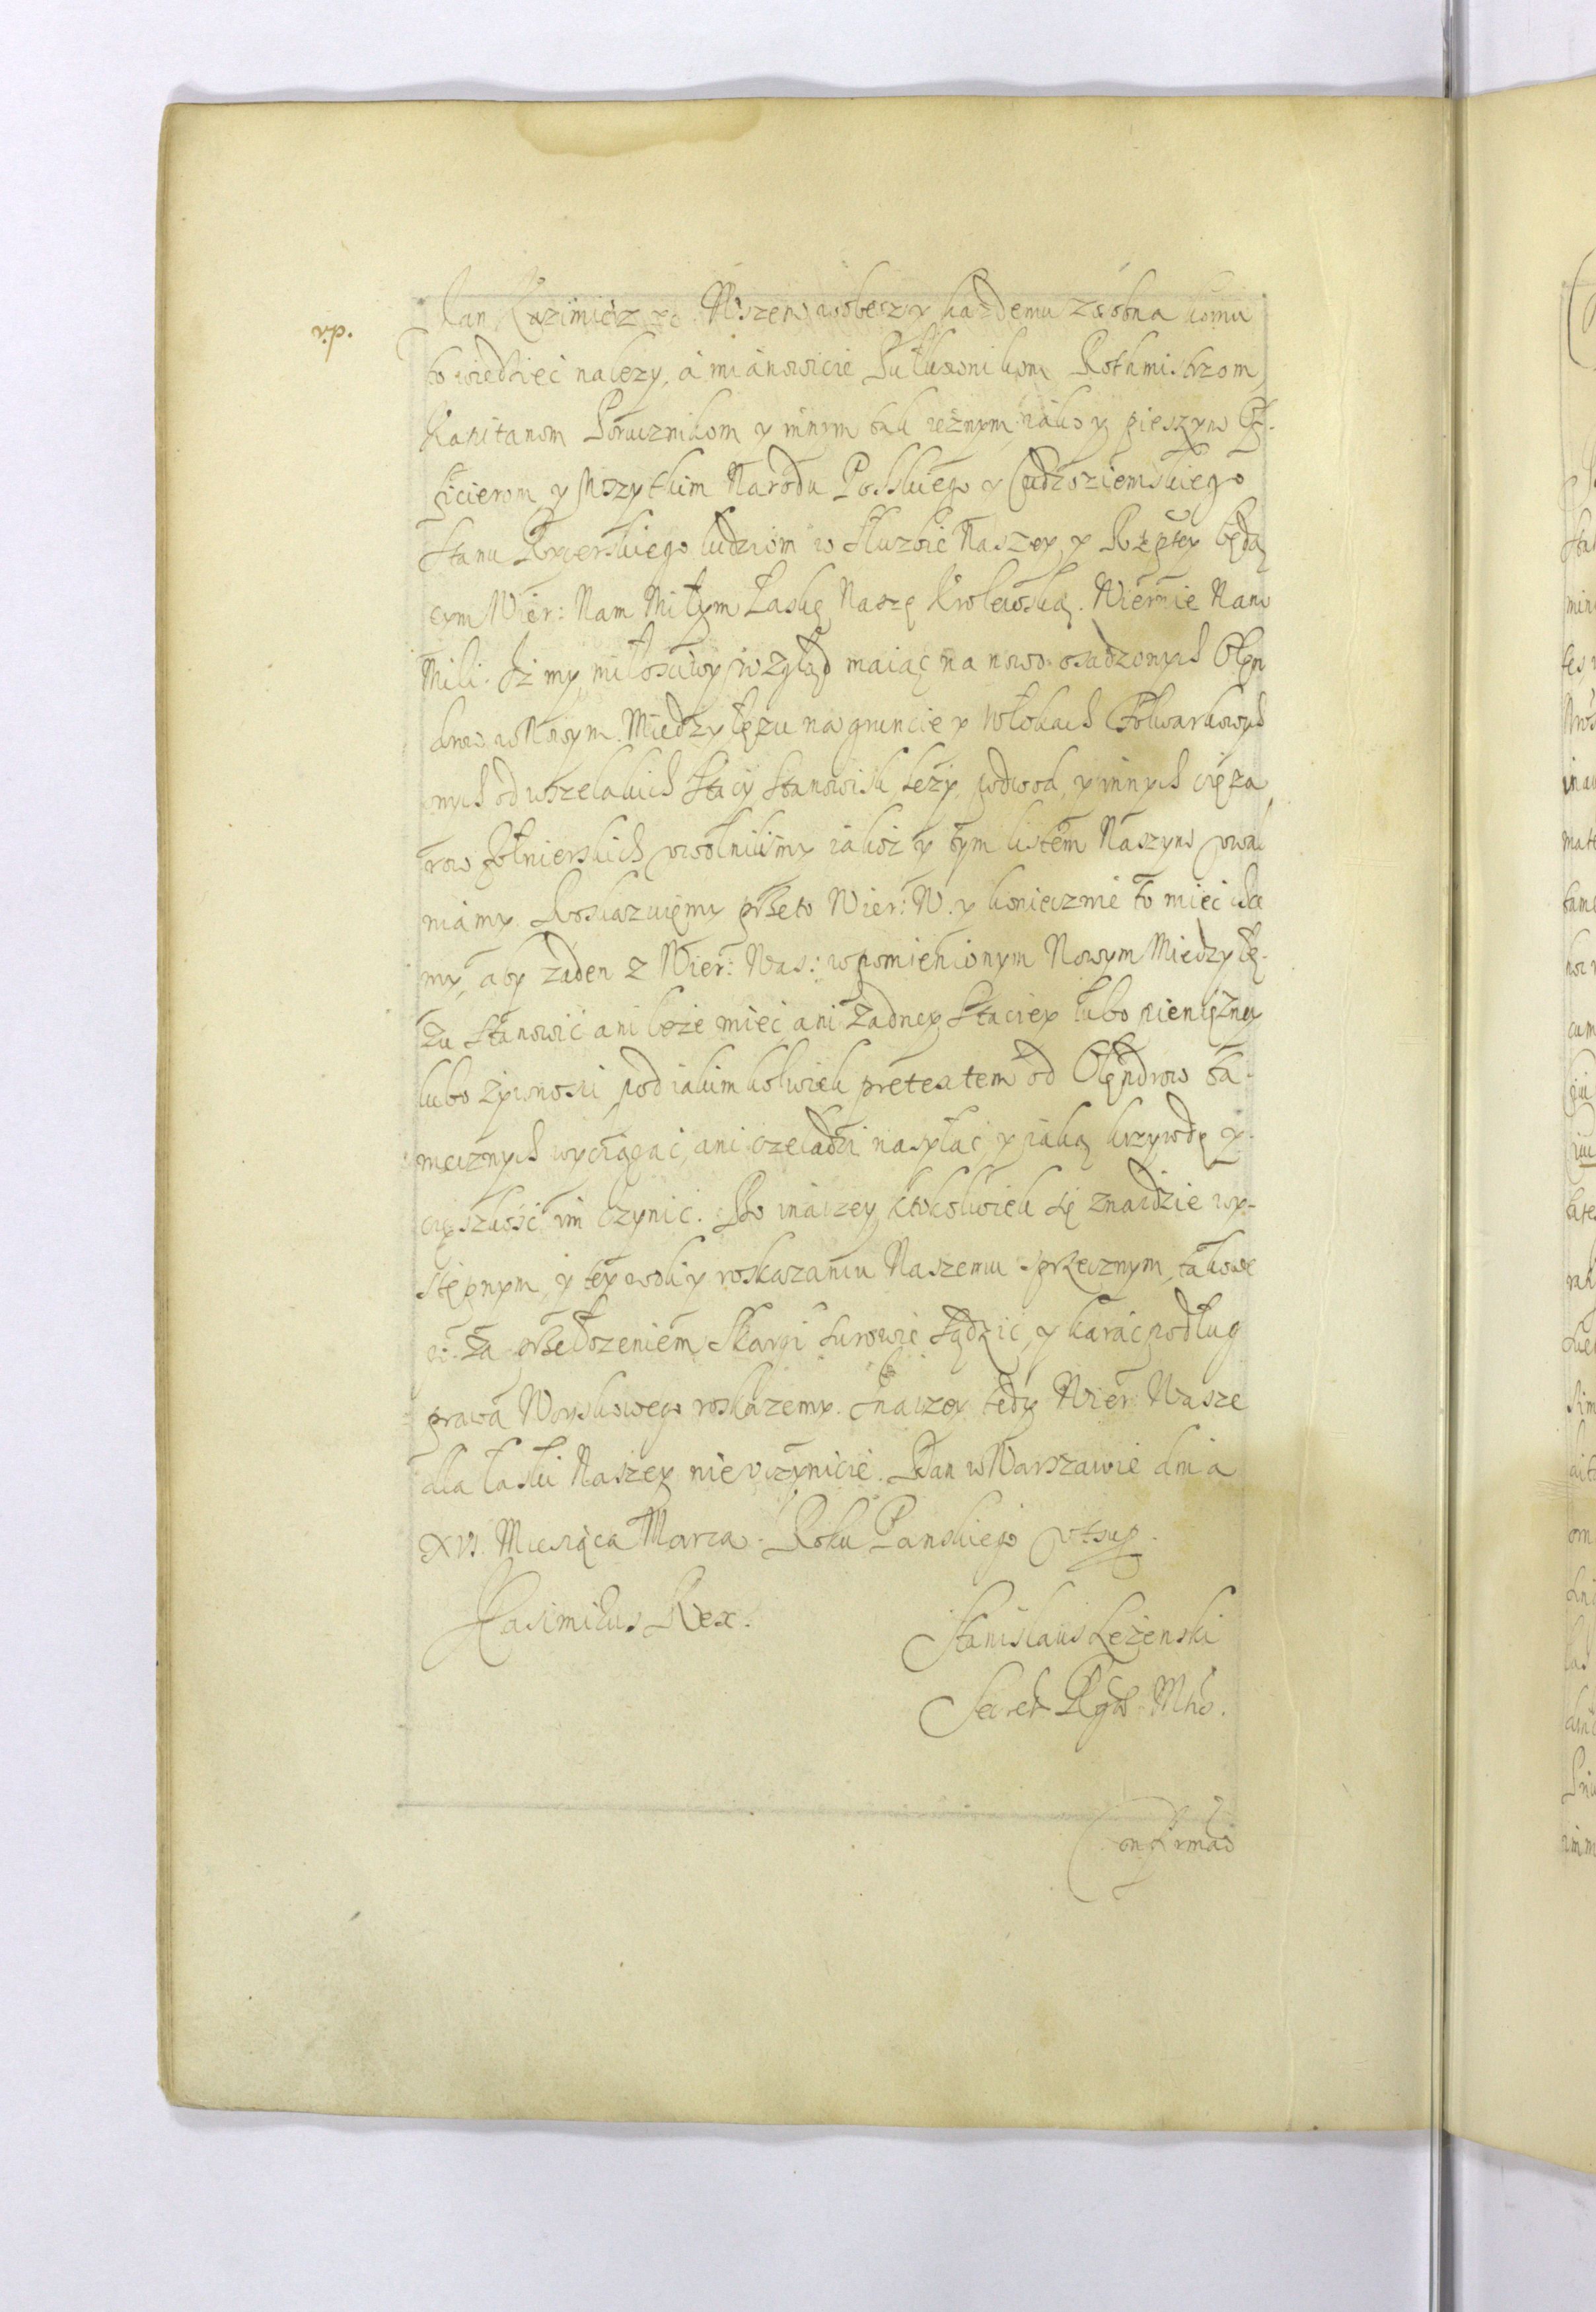 v.p.
Jan Kazimierz etc. Wszem wobesz y każdemu zosobna komu
to wiedzieć należy, á mianowicie Pułkownikom Rothmistrzom,
Kapitanom Porucznikom y innym tak ieznym iako y pieszym Of-
ficierom y Wszytkim Narodu Polskiego y Cudzoziemskiego
Stanu Rycerskiego ludziom w Służbie Naszey y Rzeptey będą
cym Wier: Nam Miłym Łaskę Naszę Krolewską. Wiernie Nam
Mili. Iż my miłościwy wzgląd maiąc na nowo osadzonych Olęn
drow w Nowym Międzyłężu na gruncie y Włokach Folwarkowych
onych od wszelakich Stacij Stanowisk leży podwod, y innych cięża
row żołnierskich uwolnilismy iakoż y tym listem Naszym uwal
niamy. Roskazuiemy przeto Wier: W. y koniecznie to mieć chce
my, aby żaden z Wier: Was: wpomienionym Nowym Miedzyłę-
żu Stanowić ani leże mieć, ani żadney Staciey lubo pieniężney
lubo żywnosci pod iakimkolwiek pretextem od Olęndrow ta-
mecznych wyciągać, ani czeladzi nasyłać, y iaką krzywdę y
cięszkość im czynić. Bo inaczey ktokolwiek się znaidzie wy-
stępnym, y tey woli y roskazaniu Naszemu sprzecznym, takowe
o: za przełożeniem Skargi surowie sądzić, y karać podług
prawa Woyskowego roskażemy. Inaczey tedy Wier: Wasze
dla łaski Naszey nie uczynicie. Dan w Warszawie dnia
XVI. Miesiąca Marca. Roku Panskiego ut sup.
Casimirus Rex.
Stanislaus Leżenski
Secret. Rgae Mtis.
Confirmao